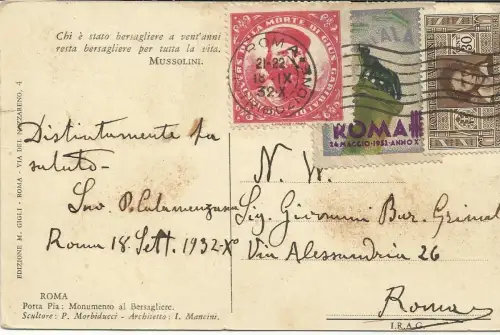 Chi è stato bersagliere a vent'anni
resta bersagliere per tutta la vita.
MUSSOLINI.
DELLA MORTE DI GIUS. GARIBALDI
ROMA
21-22
18 IX
32-X
ROMA
24 MAGGIO-1932-ANNO X
30
EDIZIONE M. GIGLI - ROMA - VIA DEL NAZZARENO, 4
Distintamente la
saluto-
Roma 18. Sett. 1932-X°
N. W.
Sig. Giovanni Bur. Grimal
Via Alessandria 26
Roma
ROMA
Porta Pia: Monumento al Bersagliere.
Scultore: P. Morbiducci - Architetto: I. Mancini.
I.R.A.G.